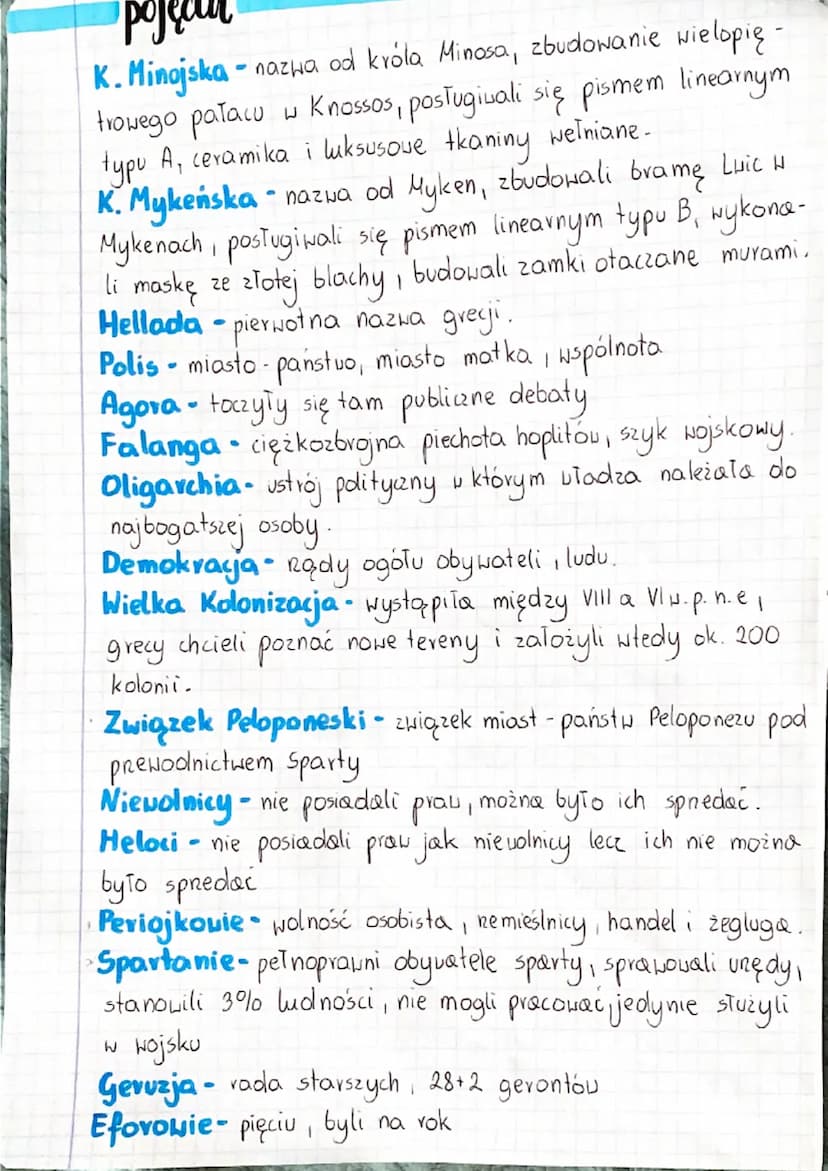 pojęcia
K. Minojska - nazwa od króla Minosa, zbudowanie wielopię-
trowego pałacu w Knossos, posługiwali się pismem linearnym
typu A, ceramika i luksusowe tkaniny wełniane.
K. Mykeńska - nazwa od Myken, zbudowali bramę Lwic w
Mykenach, posługiwali się pismem linearnym typu B, wykona-
li maskę ze złotej blachy, budowali zamki otaczane murami.
Hellada - pierwotna nazwa grecji.
Polis - miasto-państwo, miasto matka, wspólnota
Agora - toczyły się tam publiczne debaty
Falanga - ciężkozbrojna piechota hoplitów, szyk wojskowy.
Oligarchia - ustrój polityczny w którym władza należała do
najbogatszej osoby.
Demokracja - rządy ogółu obywateli, ludu.
Wielka Kolonizacja - wystąpiła między VIII a VI w. p. n. e,
grecy chcieli poznać nowe tereny i założyli wtedy ok. 200
kolonii.
Związek Peloponeski - związek miast-państw Peloponezu pod
przewodnictwem Sparty
Niewolnicy - nie posiadali praw, można było ich sprzedać.
Heloci - nie posiadali praw jak niewolnicy lecz ich nie można
było sprzedać
Periojkowie - wolność osobista, rzemieślnicy, handel i żegluga.
Spartanie - pełnoprawni obywatele sparty, sprawowali urzędy,
stanowili 3% ludności, nie mogli pracować, jedynie służyli
w wojsku
Geruzja - rada starszych, 28+2 gerontów
Eforowie - pięciu, byli na rok